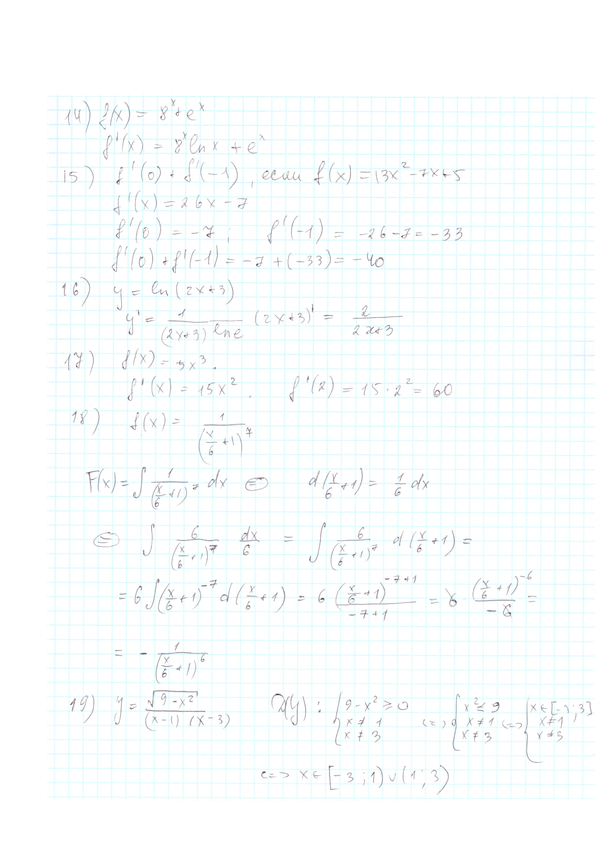 14) f(x) = 8^x + e^x
f'(x) = 8^x ln x + e^x
15) f'(0) + f'(-1), если f(x) = 13x² - 7x + 5
f'(x) = 26x - 7
f'(0) = -7; f'(-1) = -26 - 7 = -33
f'(0) + f'(-1) = -7 + (-33) = -40
16) y = ln(2x+3)
y' = 1/((2x+3) ln e) (2x+3)' = 2/(2x+3)
17) f(x) = 5x³.
f'(x) = 15x². f'(2) = 15·2² = 60
18) f(x) = 1/(x/6 + 1)^7
F(x) = ∫ 1/(x/6 + 1)^7 dx ⊜ d(x/6 + 1) = 1/6 dx
⊜ ∫ 6/(x/6 + 1)^7 dx/6 = ∫ 6/(x/6 + 1)^7 d(x/6 + 1) =
= 6 ∫ (x/6 + 1)^-7 d(x/6 + 1) = 6 (x/6 + 1)^(-7+1)/(-7+1) = 6 (x/6 + 1)^-6/(-6) =
= - 1/(x/6 + 1)^6
19) y = √(9-x²)/((x-1)(x-3)) D(y): { 9-x² ≥ 0 x ≠ 1 x ≠ 3 <=> { x² ≤ 9 x ≠ 1 x ≠ 3 <=> { x ∈ [-3;3] x ≠ 1 x ≠ 3
<=> x ∈ [-3; 1) ∪ (1; 3)